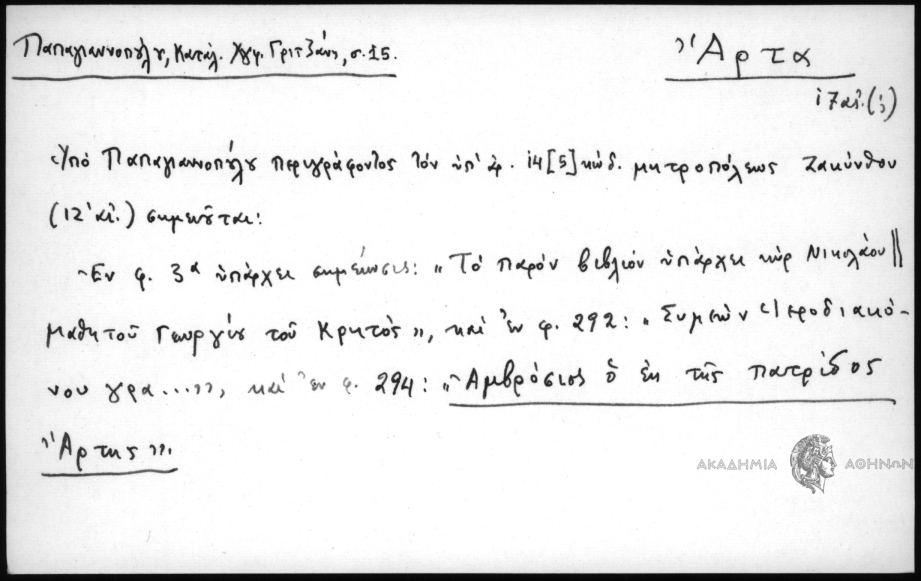 Παπαγιαννοπούλου, Καταλ. Χγφ. Γριτζάνη, σ. 15.
Ἄρτα
17 αἰ. (;)
Ὑπὸ Παπαγιαννοπούλου περιγράφοντος τὸν ὑπ' ἀρ. 14[5] κώδ. μητροπόλεως Ζακύνθου
(12' αἰ.) σημειοῦται:
Ἐν φ. 3α ὑπάρχει σημείωσις: "Τὸ παρὸν βιβλίον ὑπάρχει κὺρ Νικολάου ||
μαθητοῦ Γεωργίου τοῦ Κρητὸς", καὶ ἐν φ. 292: "Συμεὼν Ἱεροδιακό-
νου γρα....", καὶ ἐν φ. 294: "Ἀμβρόσιος ὁ ἐκ τῆς πατρίδος
Ἄρτης".
ΑΚΑΔΗΜΙΑ ΑΘΗΝΩΝ